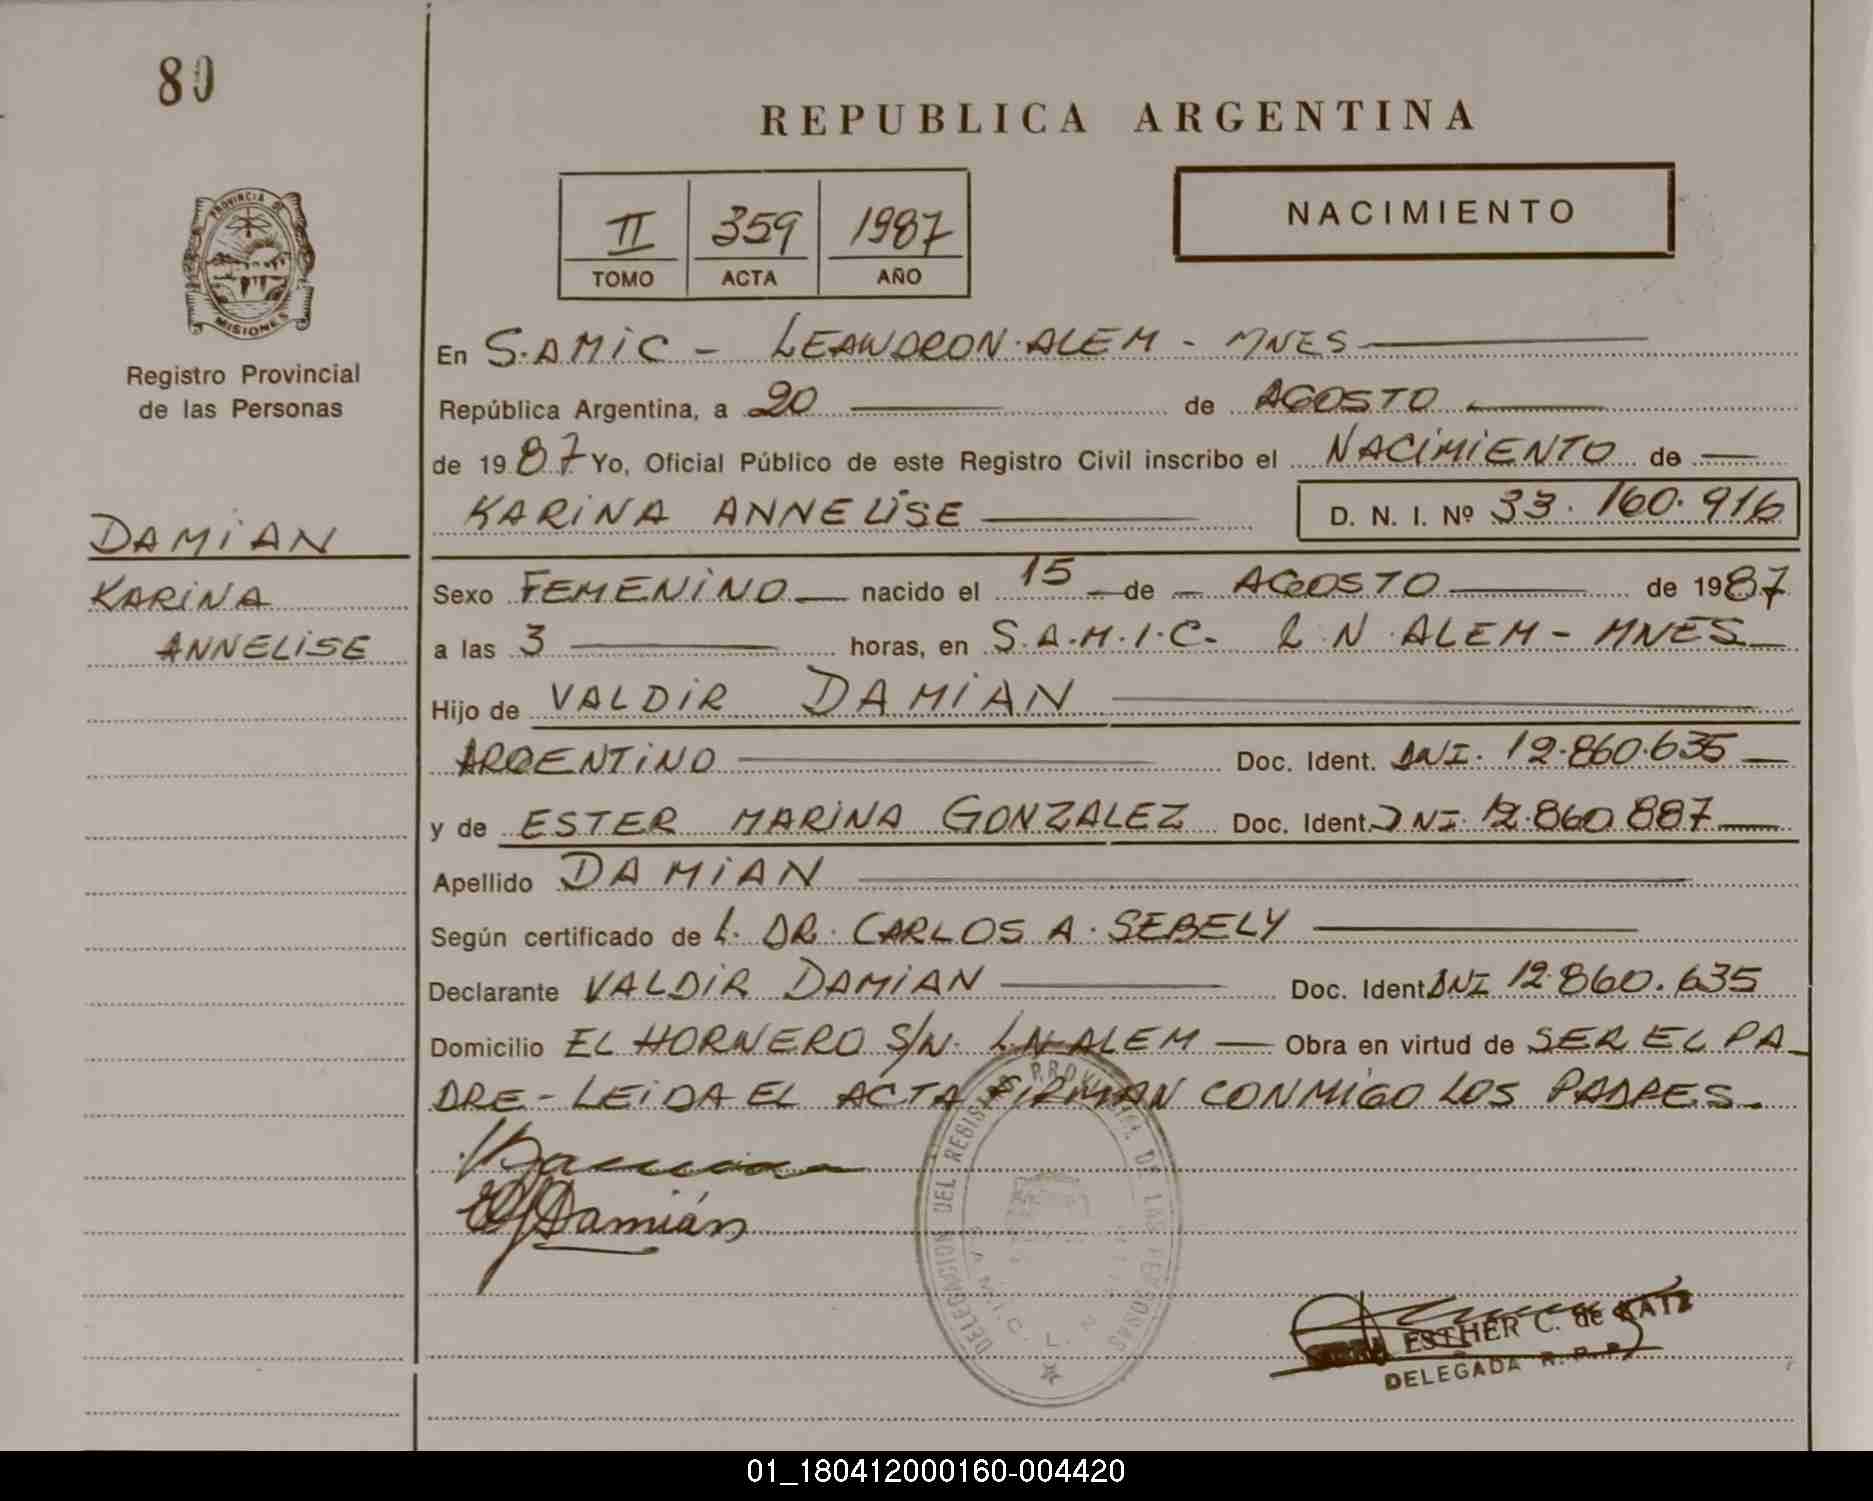 80
REPUBLICA ARGENTINA
II 359 1987
TOMO ACTA AÑO
NACIMIENTO
PROVINCIA DE
MISIONES
Registro Provincial
de las Personas
DAMiAN
KARiNA
ANNELiSE
En S.AMiC - LEANDRO N. ALEM - MNES
República Argentina, a 20 de AGOSTO
de 1987 Yo, Oficial Público de este Registro Civil inscribo el NACiMiENTO de
KARiNA ANNELiSE D. N. I. Nº 33.160.916
Sexo FEMENiNO nacido el 15 de AGOSTO de 1987
a las 3 horas, en S.A.M.I.C- L N ALEM - MNES
Hijo de VALDiR DAMiAN
ARGENTiNO Doc. Ident. DNI. 12.860.635
y de ESTER MARiNA GONZALEZ Doc. Ident. DNI. 12.860 887
Apellido DAMiAN
Según certificado de L. DR. CARLOS A. SEBELY
Declarante VALDiR DAMiAN Doc. Ident. DNI 12.860.635
Domicilio EL HORNERO S/N. L.N ALEM Obra en virtud de SER EL PA-
DRE - LEiDA EL ACTA FiRMAN CONMiGO LOS PADRES.
Damián
DELEGACION DEL REGISTRO PROVINCIAL DE LAS PERSONAS
S.A.M.I.C. L. N.
ESTHER C. de KATZ
DELEGADA R. P. P.
01_180412000160-004420